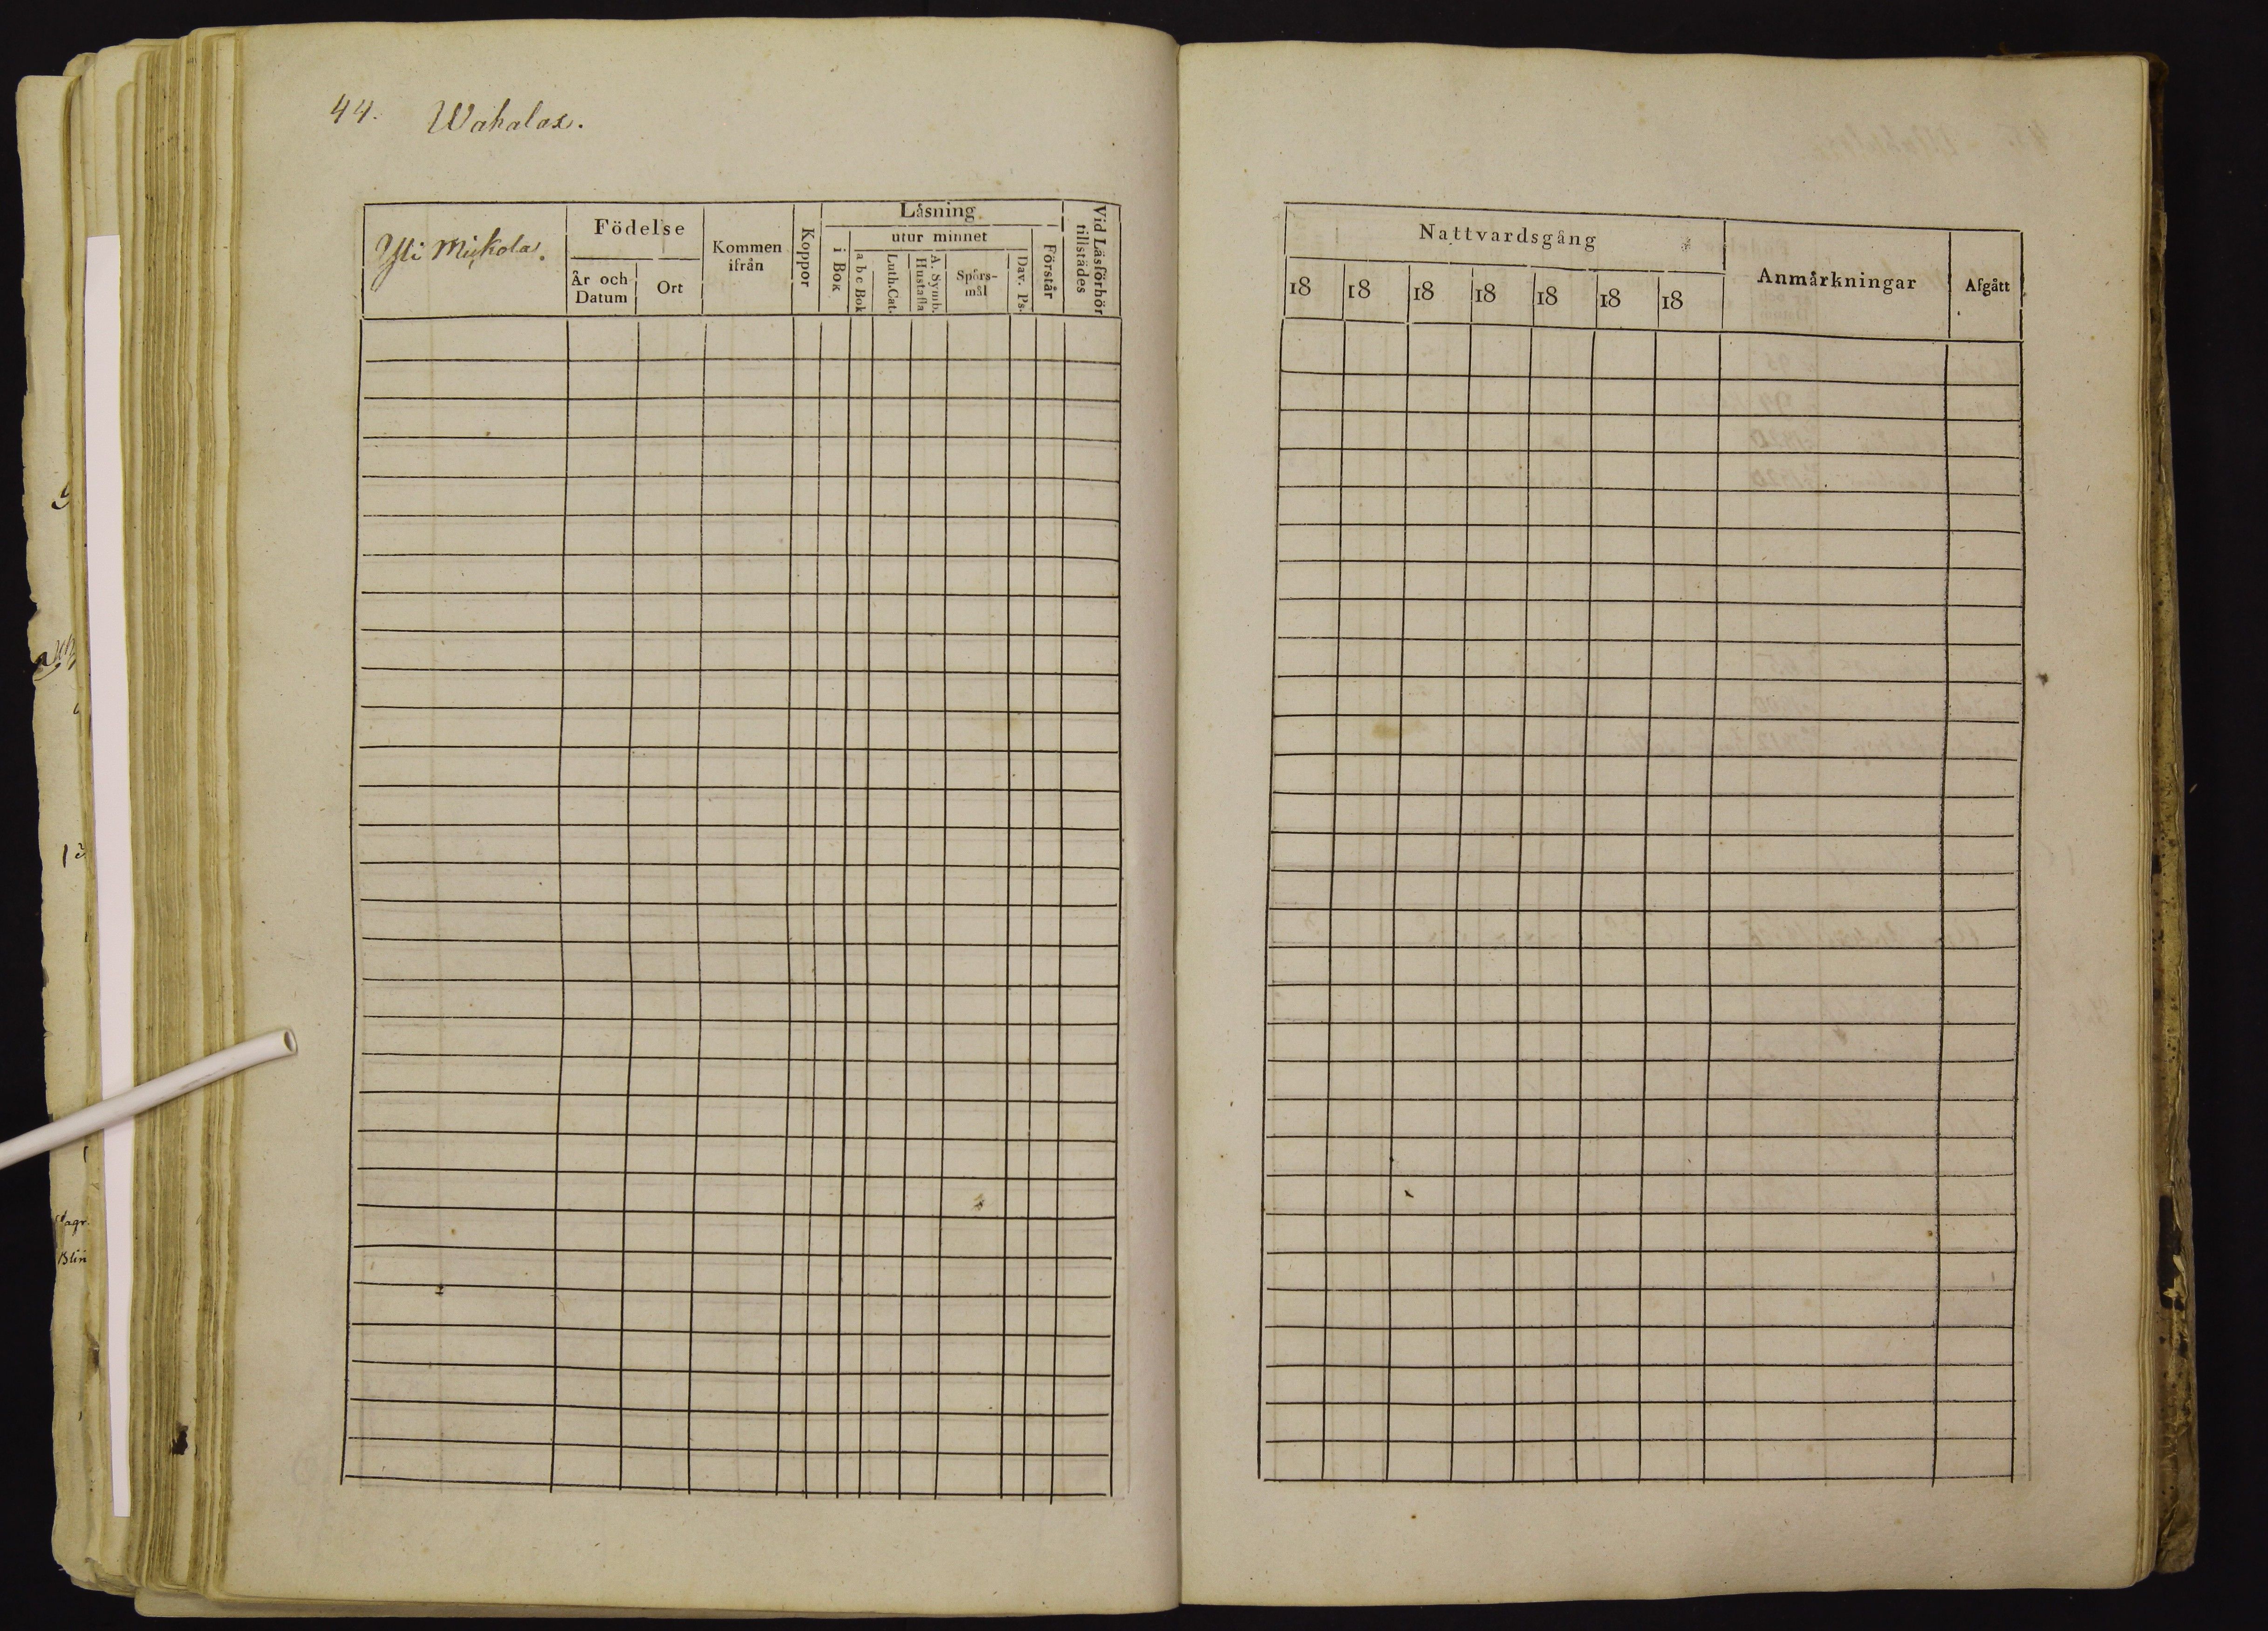 44. Wahalax.
Yli Mickola.
Födelse
År och Datum
Ort
Kommen ifrån
Koppor
Låsning
i Bok
utur minnet
a b c Bok
Luth.Cat.
A. Symb. Hustafla
Spörs-mål
Dav. Ps.
Förstår
Vid Läsförhör tillstädes
Nattvardsgång
18 18 18 18 18 18 18
Anmårkningar
Afgått